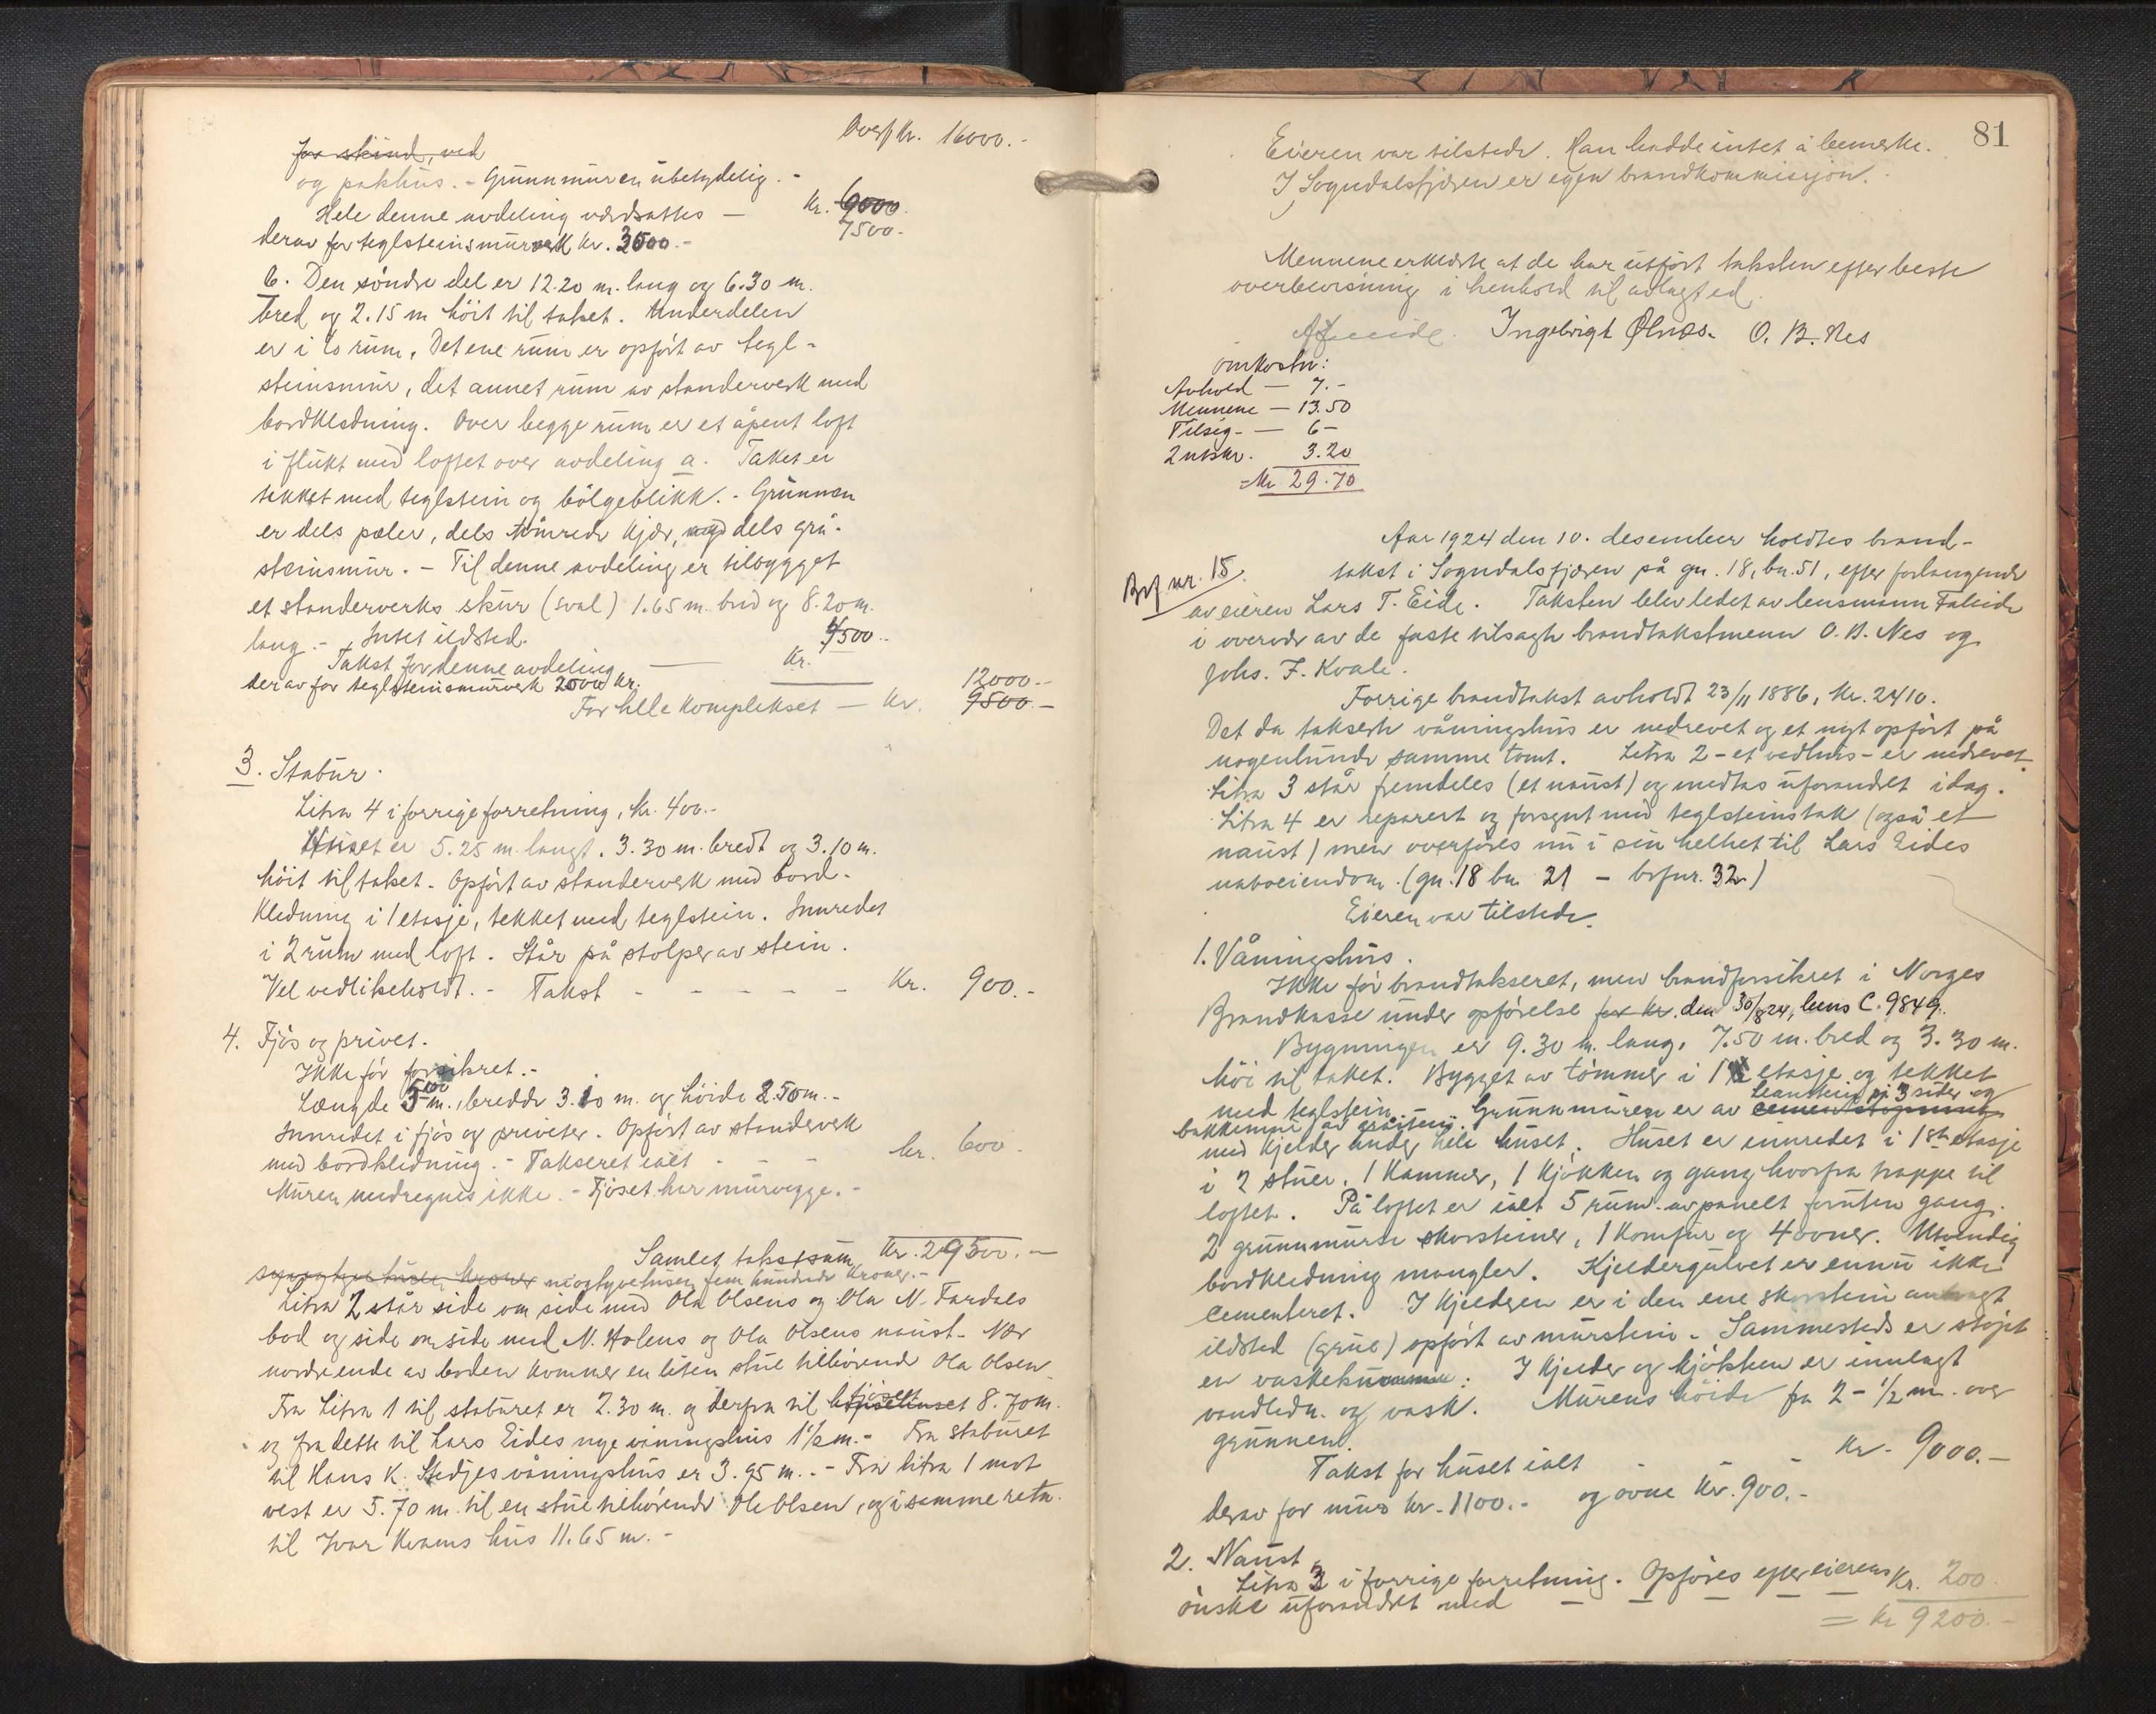 Overf Kr. 16000.-
for skind, ved
og pakhus. - Grunnmuren ubetydelig. -
Hele denne avdeling værdsattes — Kr. 6000.
7500.-
derav for teglsteinsmurverk kr. 3500.-
b. Den søndre del er 12.20 m. lang og 6.30 m.
bred og 2.15 m höit til taket. Underdelen
er i to rum. Det ene rum er opført av tegl-
steinsmur, det annet rum av standerverk med
bordklædning. Over begge rum er et åpent loft
i flukt med loftet over avdeling a. Taket er
tekket med teglstein og bölgeblikk. - Grunnen
er dels pæler, dels tömrede kjær, dels grå-
steinsmur. - Til denne avdeling er tilbygget
et standerverks skur (sval) 1.65 m. bred og 8.20 m.
lang. - Intet ildsted.
Takst for denne avdeling — Kr. 4500.-
derav for teglsteinsmurverk 2000 kr.
12000.-
For hele komplekset — Kr. 9500.-
3. Stabur.
Litra 4 i forrige forretning, kr. 400.-
Huset er 5.25 m. langt, 3.30 m. bredt og 3.10 m.
höit til taket. Opført av standerverk med bord-
kledning i 1 etasje, tekket med teglstein. Innredet
i 2 rum med loft. Står på stolper av stein.
Vel vedlikeholdt. - Takst - - - - - Kr. 900.-
4. Fjös og privet.
Ikke för forsikret. -
Længde 5 m., bredde 3.10 m. og höide 2.50 m. -
Innredet i fjös og priveter. Opført av standerverk
med bordkledning. - Takseret ialt - - - kr. 600.
Muren medregnes ikke. - Fjöset har murvegge. -
Samlet takstsum Kr. 29500.-
niogtyvetusen fem hundrede kroner. -
Litra 2 står side om side med Ola Olsens og Ola N. Fardals
bod og side om side med N. Holens og Ola Olsens naust. Nær
nordre ende av boden kommer en liten stue tilhørende Ola Olsen.
Fra Litra 1 til staburet er 2.30 m. og derfra til fjöset 8.70 m.
og fra dette til Lars Eides nye våningshus 1 1/2 m. - Fra staburet
til Hans K. Stedjes våningshus er 3.95 m. - Fra litra 1 mot
vest er 5.70 m. til en stue tilhørende Ole Olsen, og i samme retn.
til Ivar Kvams hus 11.65 m. -
81
Eieren var tilstede. Han hadde intet å bemerke.
I Sogndalsfjæren er egen brandkommisjon.
Mennene erklærte at de har utført taksten efter beste
overbevisning i henhold til avlagt ed.
Ingebrigt Ølnæs. O. B. Nes
Omkostn:
Avhold — 7.-
Mennene — 13.50
Tilsig. — 6-
2 utskr. 3.20
= Kr 29.70
Aar 1924 den 10. desember holdtes brand-
Brf nr. 15.
takst i Sogndalsfjæren på gn. 18, bn. 51, efter forlangende
av eieren Lars T. Eide. Taksten blev ledet av lensmann Faleide
i overvær av de faste tilsagte brandtakstmenn O. B. Nes og
Johs. F. Kvale.
Forrige brandtakst avholdt 23/11 1886, kr. 2410.
Det da takserte våningshus er nedrevet og et nyt opført på
nogenlunde samme tomt. Litra 2 - et vedhus - er nedrevet.
Litra 3 står fremdeles (et naust) og medtas uforandret idag.
Litra 4 er reparert og forsynt med teglsteinstak (også et
naust) men overføres nu i sin helhet til Lars Eides
naboeiendom. (gn. 18 bn. 21 - brfnr. 32.)
Eieren var tilstede.
1. Våningshus.
Ikke för brandtakseret, men brandforsikret i Norges
Brandkasse under opførelse for kr. den 30/8 24, lens C. 9849.
Bygningen er 9.30 m. lang, 7.50 m. bred og 3.30 m.
höi til taket. Bygget av tömmer i 1 etasje og tekket
med teglstein. - Grunnmuren er av på 3 sider og
bakkemur av gråstein.
med kjelder under hele huset. Huset er innredet i 1ste etasje
i 2 stuer, 1 kammer, 1 kjökken og gang hvorfra trappe til
loftet. På loftet er ialt 5 rum av panelt foruten gang.
2 grunnmurte skorsteiner, 1 komfur og 4 ovner. Utvendig
bordkledning mangler. Kjeldergulvet er ennu ikke
cementeret. I kjelderen er i den ene skorstein anbragt
ildsted (grue) opført av murstein. Sammesteds er støpt
en vaskekum. I kjelder og kjökken er innlagt
vandledn. og vask. Murens höide fra 2 - 1/2 m. over
grunnen.
Takst for huset ialt - - Kr. 9000.-
derav for mur kr. 1100.- og ovne kr. 900.-
2. Naust.
Litra 3 i forrige forretning. Opføres efter eierens
önske uforandret med — — — — — Kr. 200.
= Kr 9200.-